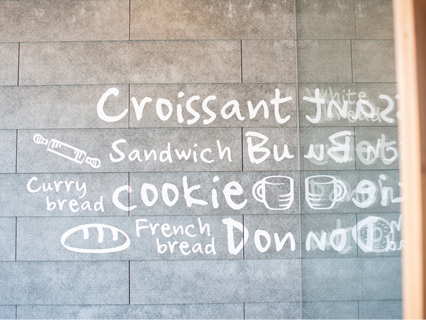 Croissant
Sandwich Bu
Curry bread cookie
French bread Don